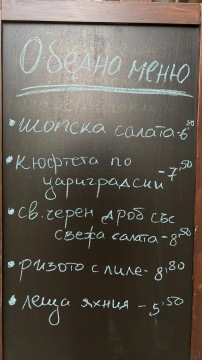 Обедно меню
• шопска салата-6⁹⁰
• кюфтета по
цариградски -7⁵⁰
• св. черен дроб със
свежа салата-8⁵⁰
• ризото с пиле-8⁸⁰
• леща яхния -5⁵⁰